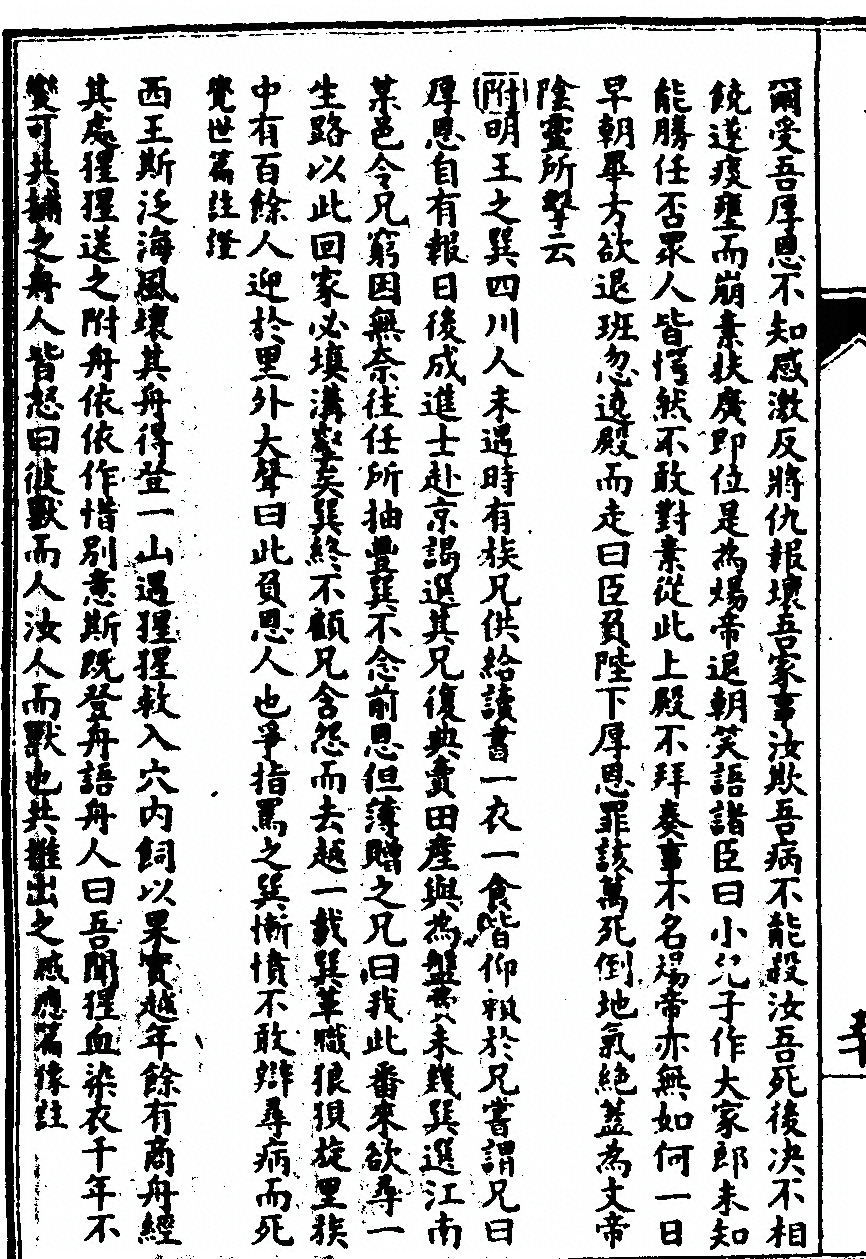 爾受吾厚恩不知感激反將仇報壞吾家事汝欺吾病不能殺汝吾死後決不相
饒遂痰壅而崩素扶廣即位是為煬帝退朝笑語諸臣曰小兒子作大家郎未知
能勝任否眾人皆愕然不敢對素從此上殿不拜奏事不名煬帝亦無如何一日
早朝畢方欲退班忽遶殿而走曰臣負陛下厚恩罪該萬死倒地氣絶蓋為文帝
陰靈所擊云
附明王之巽四川人未遇時有族兄供給讀書一衣一食皆仰賴於兄嘗謂兄曰
厚恩自有報日後成進士赴京謁選其兄復典賣田產與為盤費未幾巽選江南
某邑令兄窮困無奈往任所抽豐巽不念前恩但薄贈之兄曰我此番來欲尋一
生路以此回家必填溝壑矣巽終不顧兄含怨而去越一載巽革職狼狽旋里族
中有百餘人迎於里外大聲曰此負恩人也爭指罵之巽慚憤不敢辯尋病而死
覺世篇註證
西王斯泛海風壞其舟得登一山遇猩猩救入穴內飼以果實越年餘有商舟經
其處猩猩送之附舟依依作惜別意斯既登舟語舟人曰吾聞猩血染衣千年不
變可共捕之舟人皆怒曰彼獸而人汝人而獸也共推出之感應篇像註